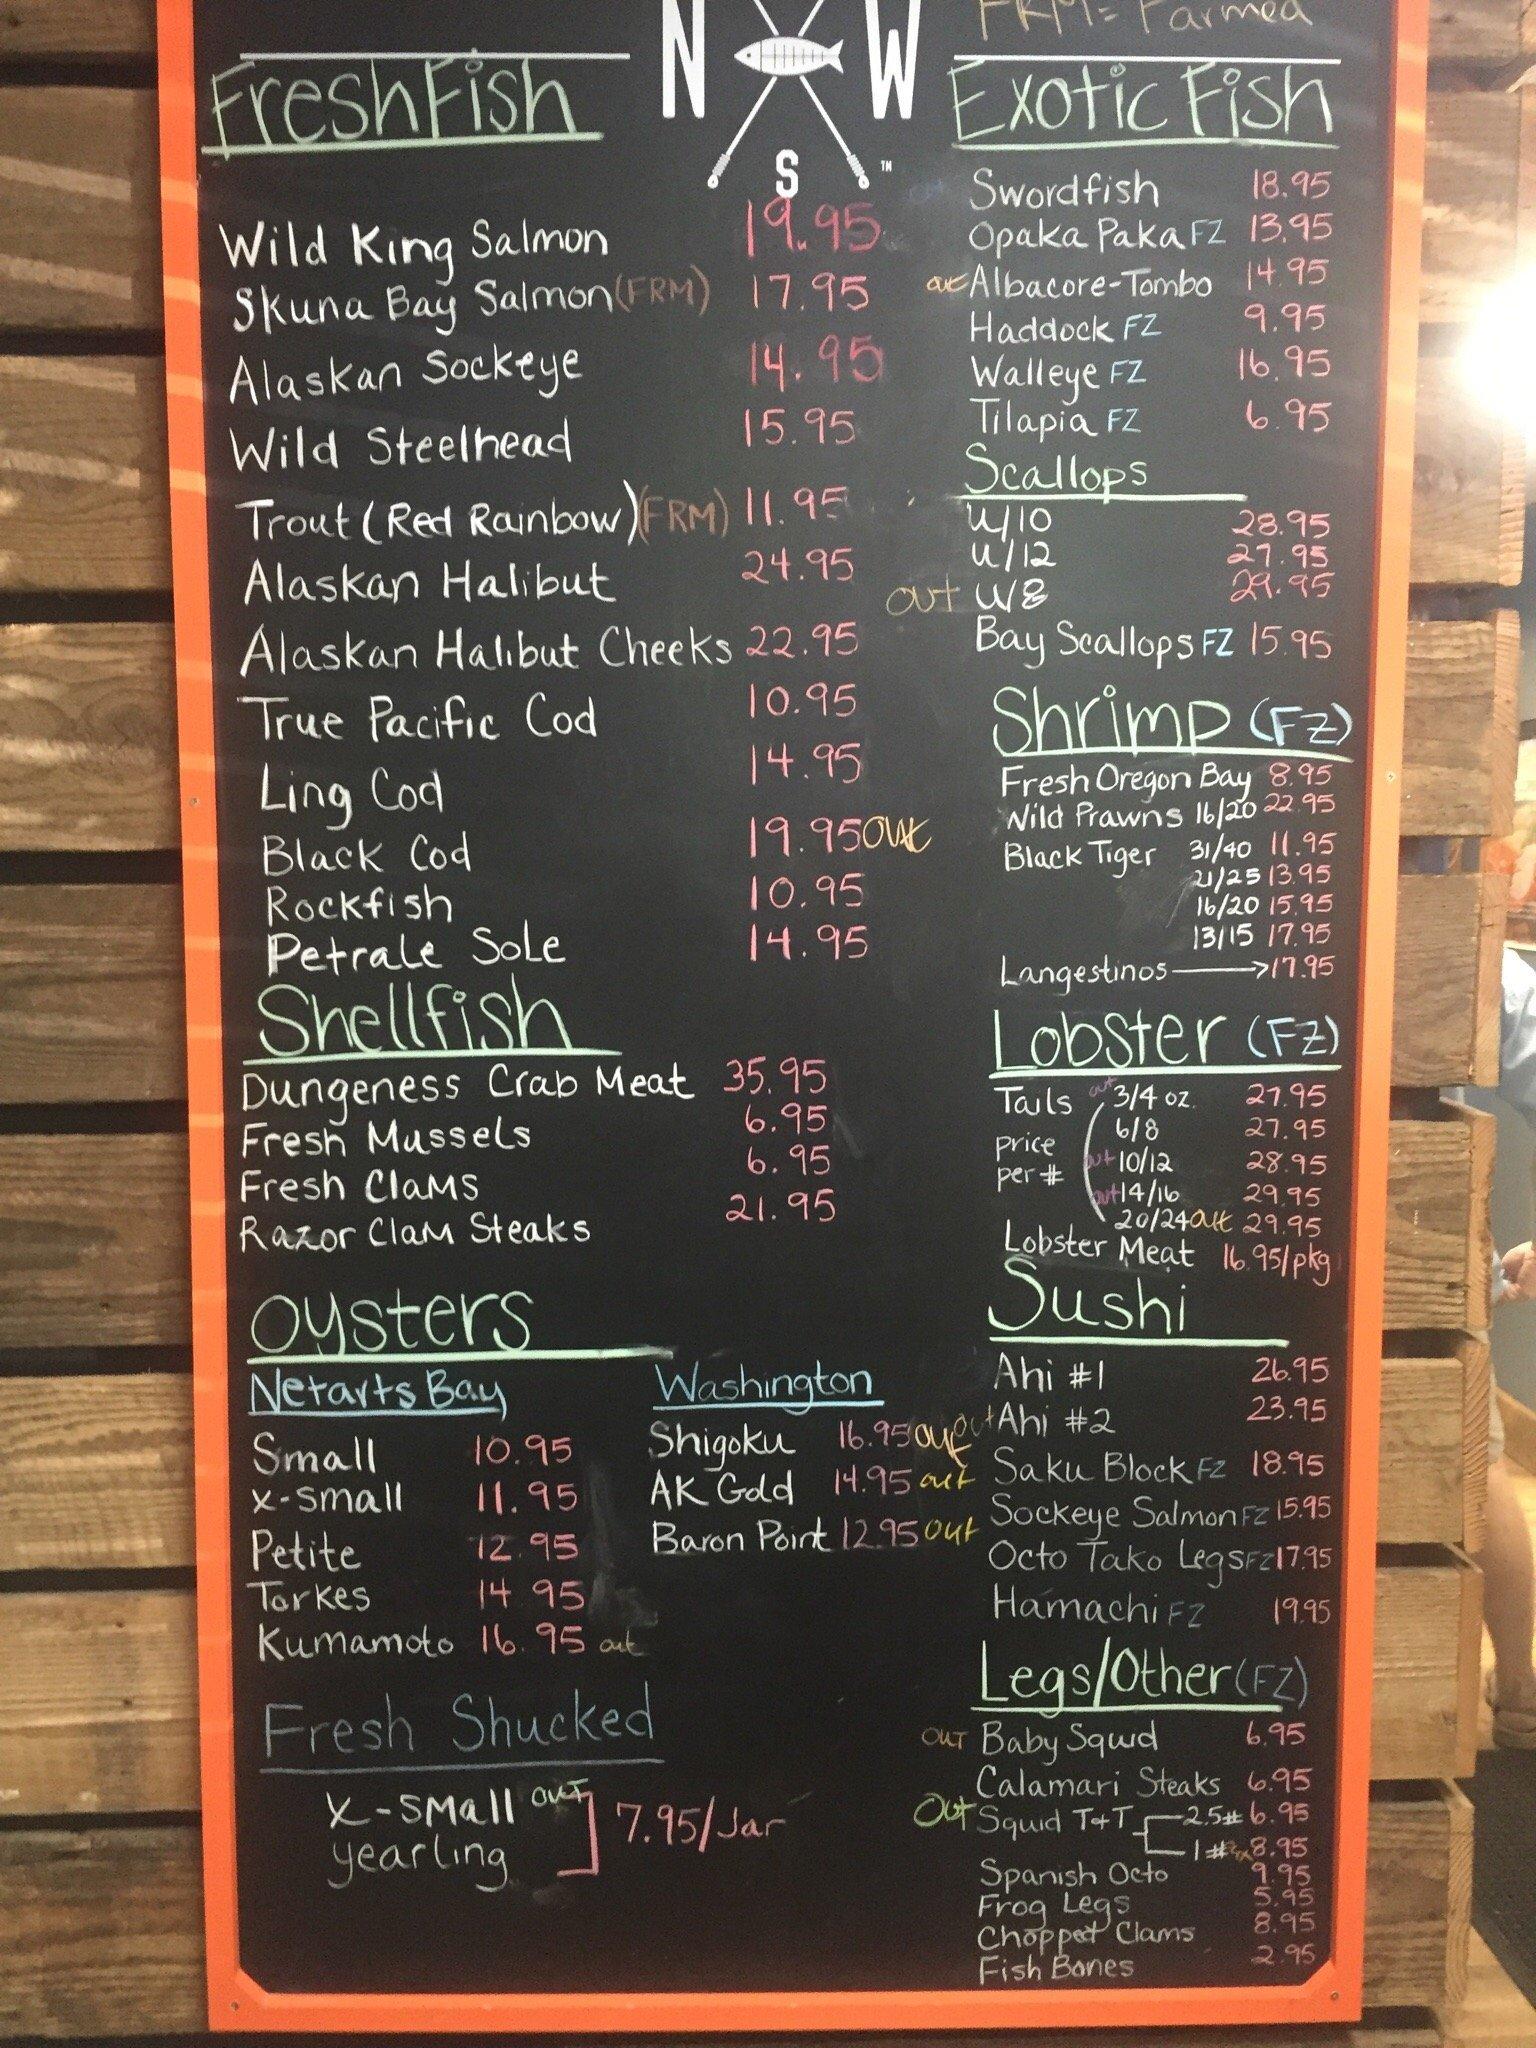 FRM = Farmed
N W
S
TM
Fresh Fish
Wild King Salmon 19.95
Skuna Bay Salmon (FRM) 17.95
Alaskan Sockeye 14.95
Wild Steelhead 15.95
Trout (Red Rainbow) (FRM) 11.95
Alaskan Halibut 24.95
Alaskan Halibut Cheeks 22.95
True Pacific Cod 10.95
Ling Cod 14.95
Black Cod 19.95 out
Rockfish 10.95
Petrale Sole 14.95
Shellfish
Dungeness Crab Meat 35.95
Fresh Mussels 6.95
Fresh Clams 6.95
Razor Clam Steaks 21.95
Oysters
Netarts Bay
Small 10.95
x-small 11.95
Petite 12.95
Torkes 14.95
Kumamoto 16.95 out
Washington
Shigoku 16.95 out
AK Gold 14.95 out
Baron Point 12.95 out
Fresh Shucked
X-small out
yearling
7.95/Jar
Exotic Fish
Swordfish 18.95
Opaka Paka FZ 13.95
out Albacore-Tombo 14.95
Haddock FZ 9.95
Walleye FZ 16.95
Tilapia FZ 6.95
Scallops
U/10 28.95
U/12 27.95
out U/8 29.95
Bay Scallops FZ 15.95
Shrimp (FZ)
Fresh Oregon Bay 8.95
Wild Prawns 16/20 22.95
Black Tiger 31/40 11.95
21/25 13.95
16/20 15.95
13/15 17.95
Langestinos → 17.95
Lobster (FZ)
Tails out 3/4 oz. 27.95
6/8 27.95
price per # out 10/12 28.95
out 14/16 29.95
20/24 out 29.95
Lobster Meat 16.95/pkg
Sushi
Ahi #1 26.95
out Ahi #2 23.95
Saku Block FZ 18.95
Sockeye Salmon FZ 15.95
Octo Tako Legs FZ 17.95
Hamachi FZ 19.95
Legs/Other (FZ)
OUT Baby Squid 6.95
Calamari Steaks 6.95
Out Squid T&T 2.5# 6.95
1# 8.95
Spanish Octo 9.95
Frog Legs 5.95
Chopped Clams 8.95
Fish Bones 2.95